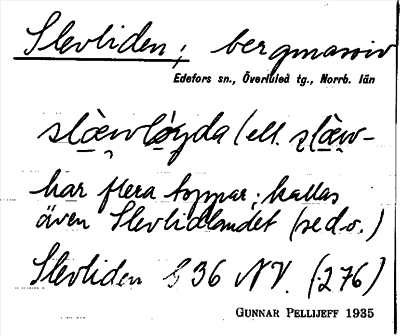 Slevliden; bergmassiv
Edefors sn., Överluleå tg., Norrb. län
slæ̀wlóyda (ell. slæ̀w-
har flera toppar; kallas
även Slevlidlandet (se d.o.)
Slevliden G 36 NV. (276)
GUNNAR PELLIJEFF 1935